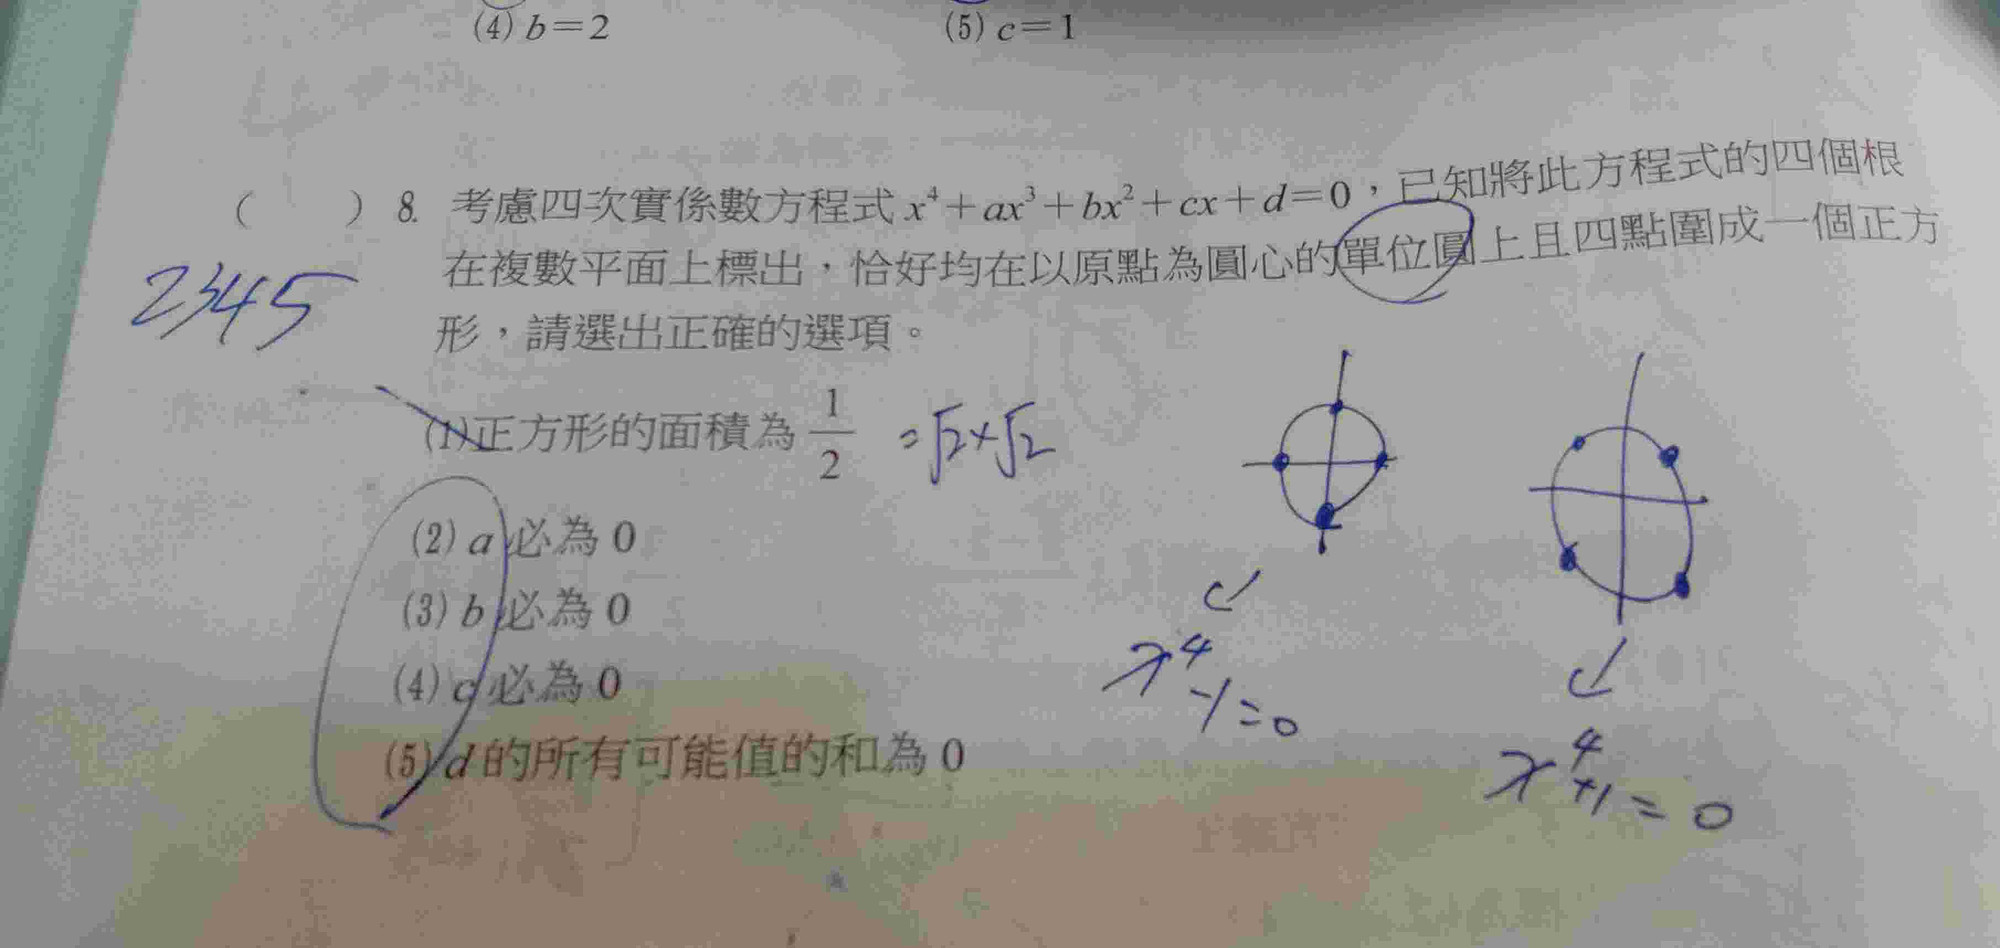 (4) b=2 (5) c=1
( ) 8. 考慮四次實係數方程式 x⁴+ax³+bx²+cx+d=0，已知將此方程式的四個根
在複數平面上標出，恰好均在以原點為圓心的單位圓上且四點圍成一個正方
形，請選出正確的選項。
2345
(1)正方形的面積為 1/2 =√2×√2
(2) a 必為 0
(3) b 必為 0
(4) c 必為 0
(5) d 的所有可能值的和為 0
x⁴-1=0
x⁴+1=0